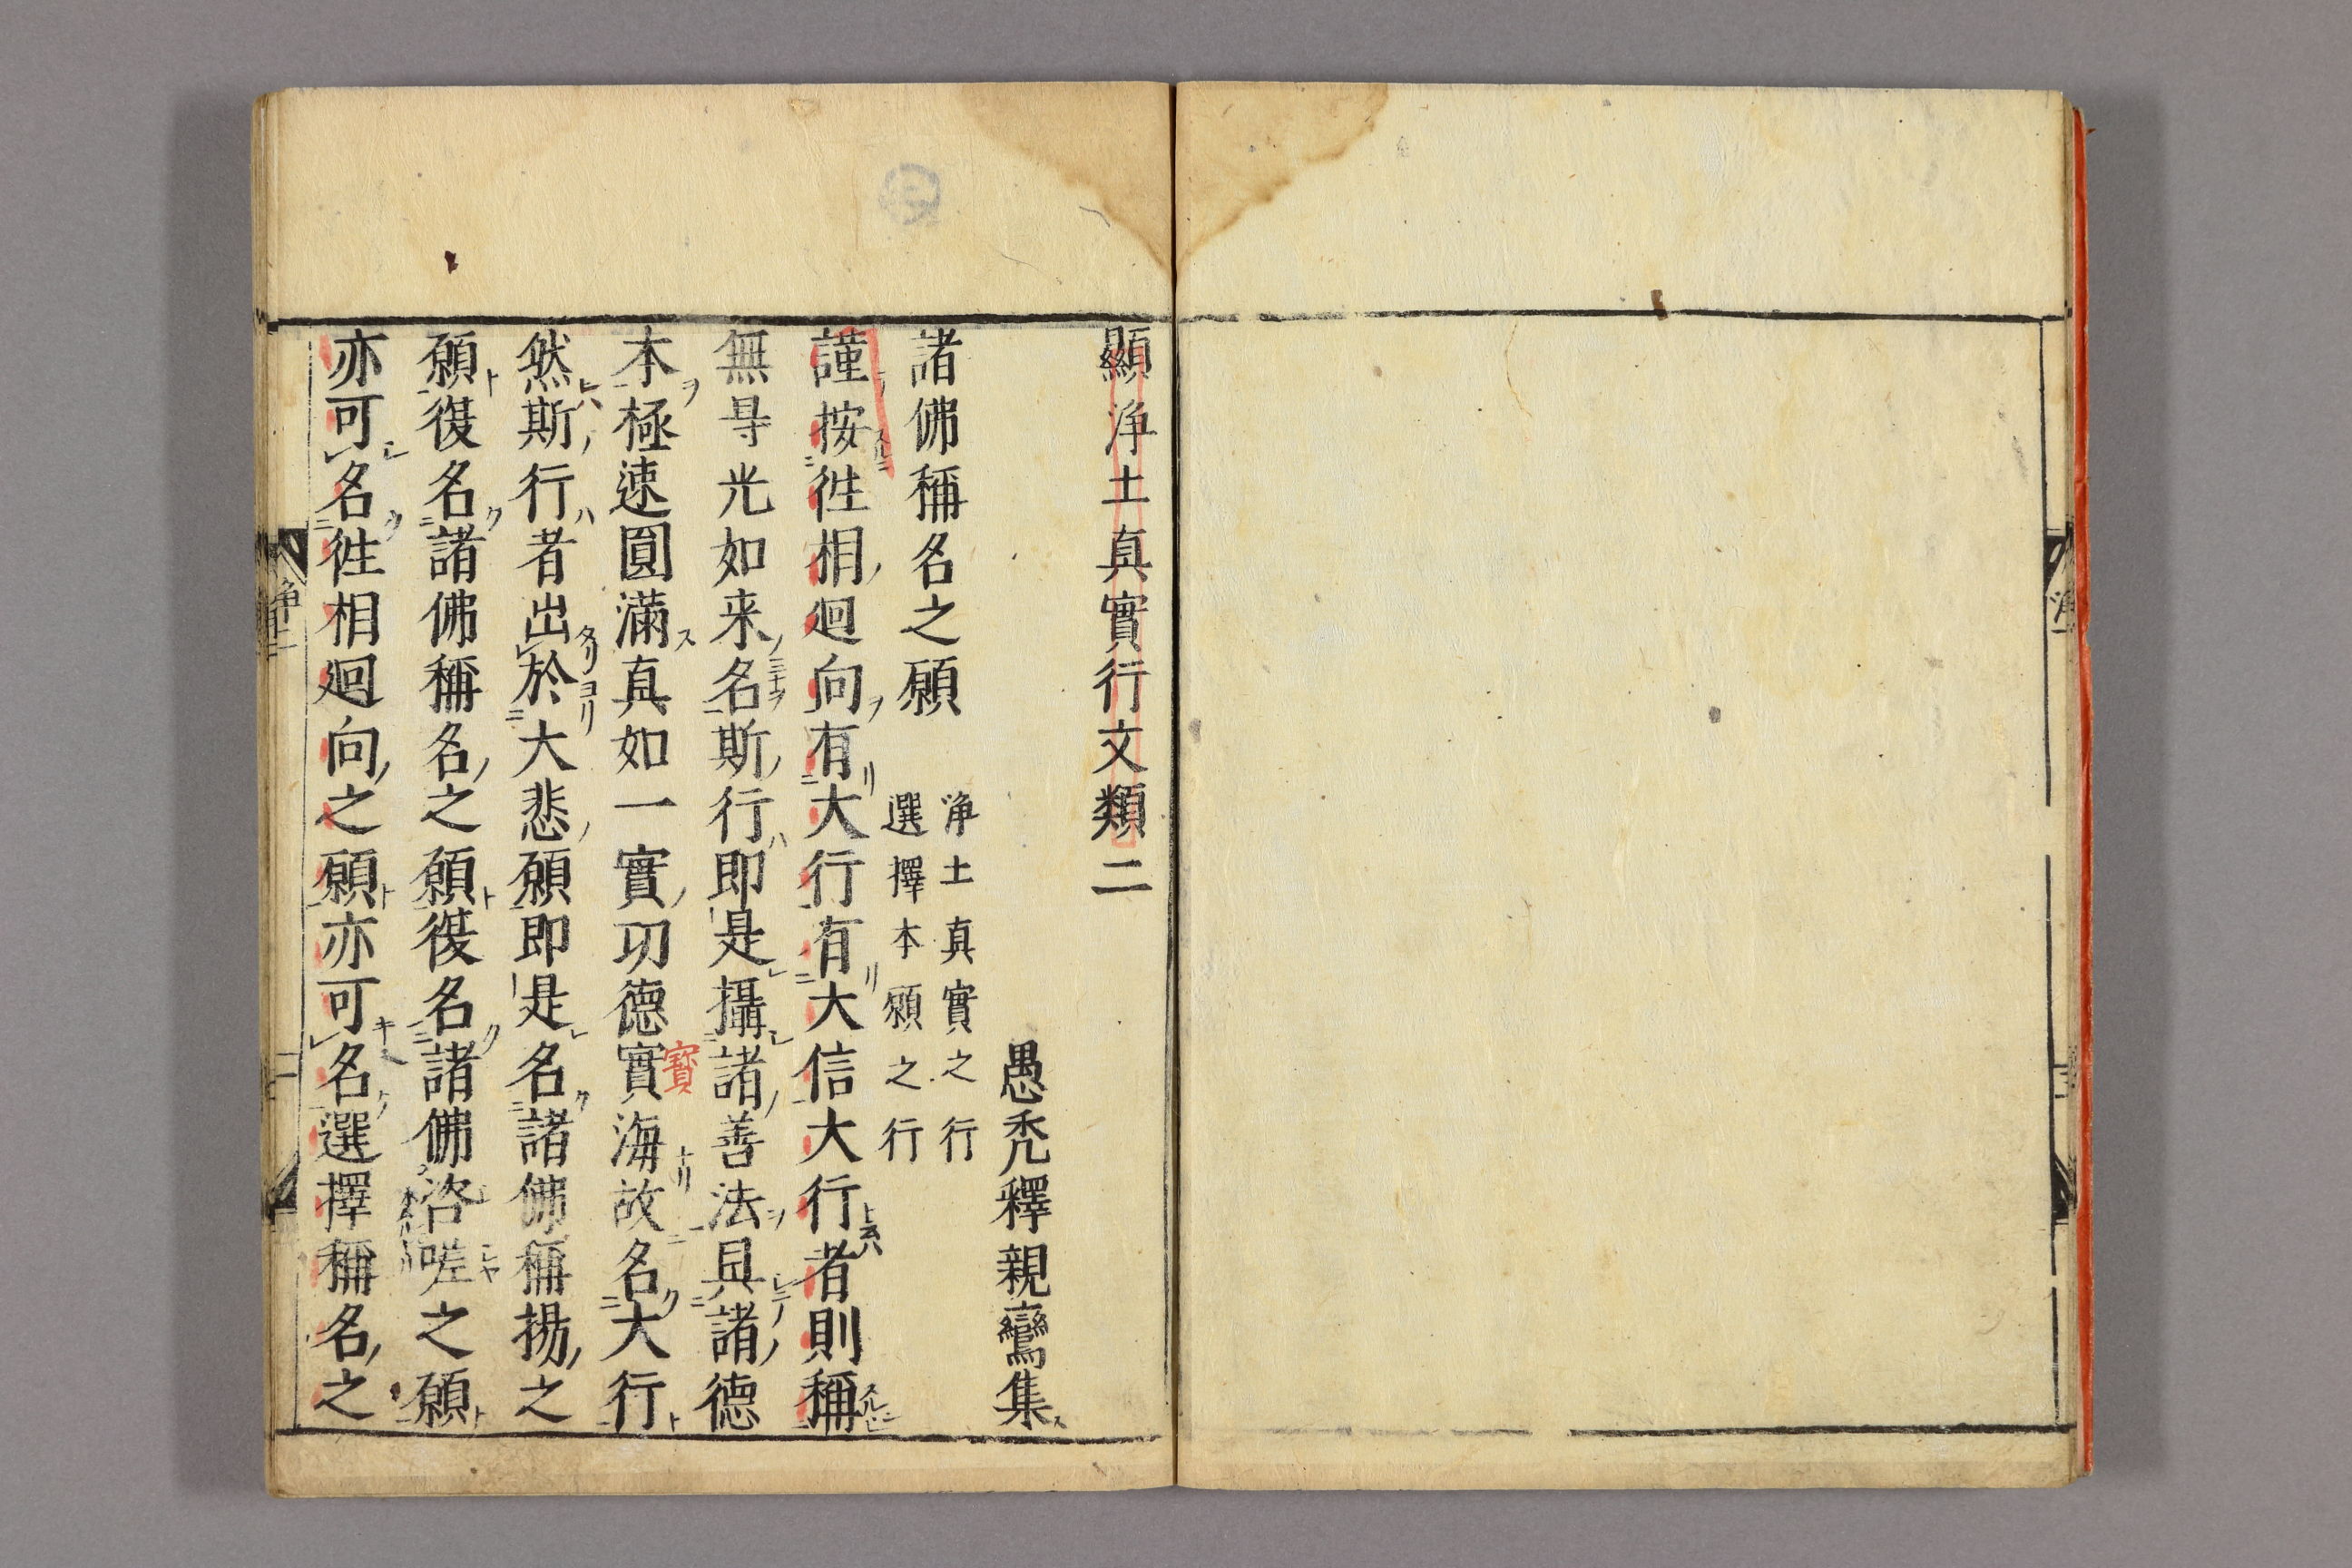 顯淨土真實行文類二
愚禿釋親鸞集
諸佛稱名之願
淨土真實之行
選擇本願之行
謹按徃相迴向有大行有大信大行者則稱
無㝵光如来名斯行即是攝諸善法具諸德
本極速圓滿真如一實功德實海故名大行
寳
然斯行者出於大悲願即是名諸佛稱揚之
願復名諸佛稱名之願復名諸佛咨嗟之願
亦可名徃相迴向之願亦可名選擇稱名之